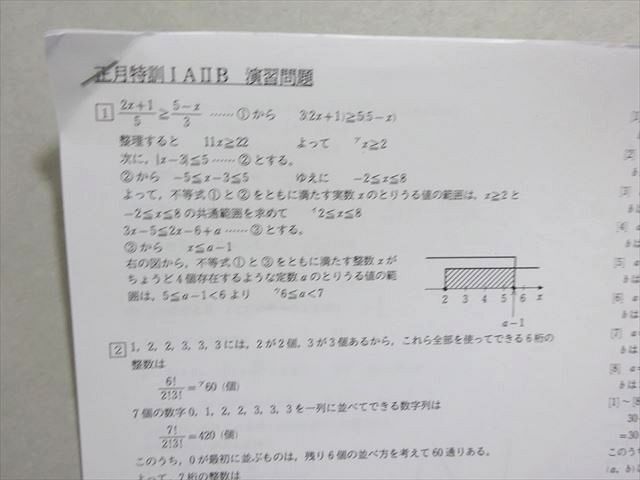 正月特訓ⅠAⅡB 演習問題
1 (2x+1)/5 ≧ (5−x)/3 …… ①から 3(2x+1)≧5(5−x)
整理すると 11x≧22 よって ア x≧2
次に，|x−3|≦5 …… ②とする。
②から −5≦x−3≦5 ゆえに −2≦x≦8
よって，不等式①と②をともに満たす実数xのとりうる値の範囲は，x≧2と
−2≦x≦8の共通範囲を求めて イ 2≦x≦8
3x−5≦2x−6+a …… ③とする。
③から x≦a−1
右の図から，不等式①と③をともに満たす整数xが
ちょうど4個存在するような定数aのとりうる値の範
囲は，5≦a−1<6より ウ 6≦a<7
2 3 4 5 6 x
a−1
2 1，2，2，3，3，3には，2が2個，3が3個あるから，これら全部を使ってできる6桁の
整数は
6!/(2!3!) = ア 60（個）
7個の数字0，1，2，2，3，3，3を一列に並べてできる数字列は
7!/(2!3!) = 420（個）
このうち，0が最初に並ぶものは，残り6個の並べ方を考えて60通りある。
よって，7桁の整数は
[2]
[3]
[4] a
bは
[5]
bは
[6] a
bは
[7] a
bは
[8] a=
bは
[1]〜[8
30
=30
このうち
(a, b)